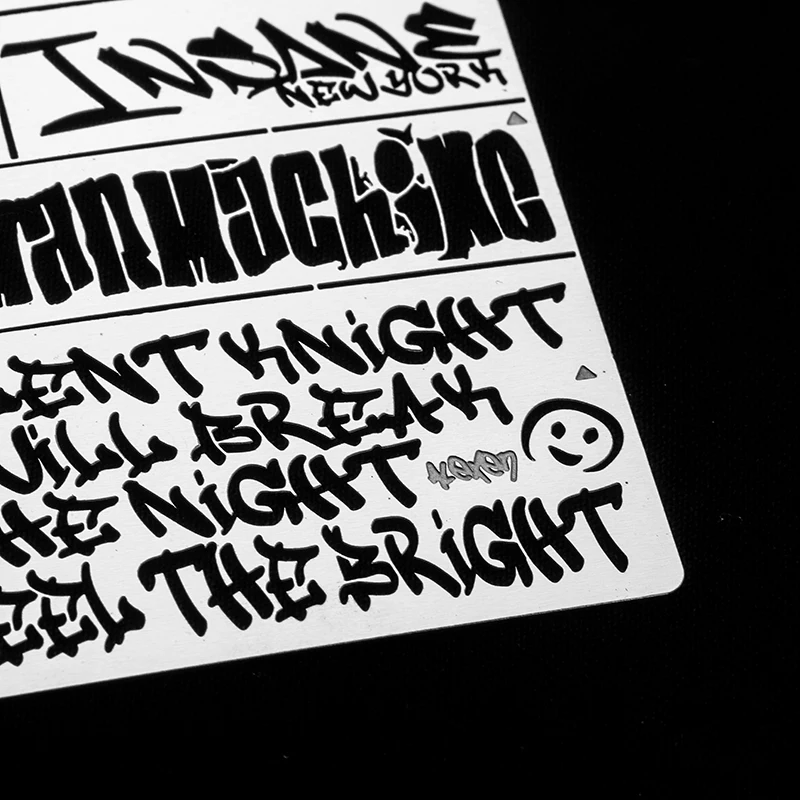 INSANE
NEW YORK
ENT KNiGHT
iLL BREAK
HE NiGHT
EEL THE BRiGHT